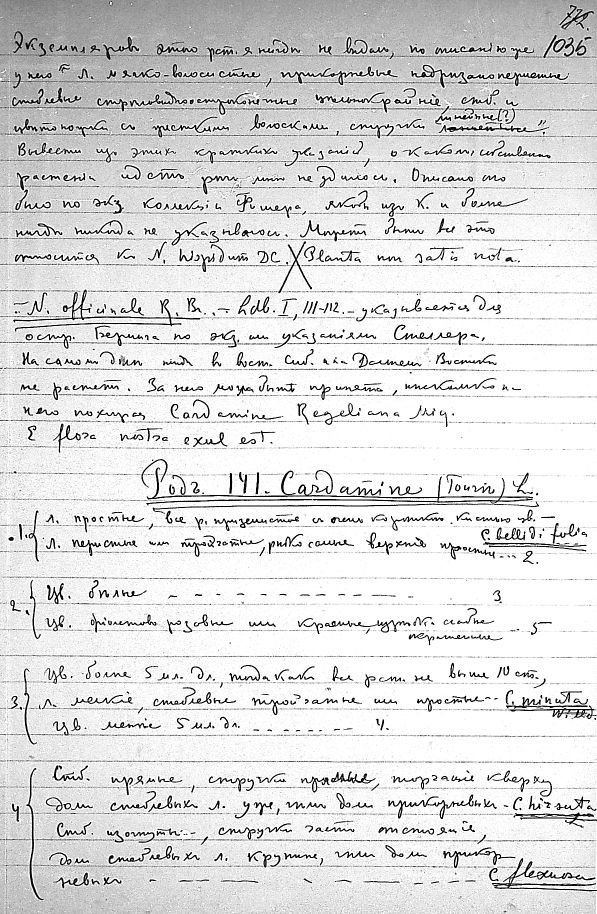 1035
Экземпляровъ этого раст. я нигдѣ не видалъ, по описанію же
у него " Л. мягко-волосистые, прикорневые
стеблевые цѣльнокрайніе, стб. и
цвѣтоножки съ жесткими волосками, стручки линейные (?)
Вывести изъ этихъ краткихъ указаній, о какомъ собственно
растеніи идетъ рѣчь, мнѣ не удалось. Описано оно
было по экз. коллекціи Фишера, якобы изъ К. и болѣе
нигдѣ никогда не указывалось. Можетъ быть все это
относится къ N. hispidum DC. Planta non satis nota.
— N. officinale R. Br. — Ldb. I, 111-112. — указывается для
остр. Беринга по экз. или указаніямъ Стеллера.
На самомъ дѣлѣ нигдѣ въ вост. Сиб. и на Дальнемъ Востокѣ
не растетъ. За него можетъ быть принята, нисколько на
него похожая Cardamine Regeliana Miq.
E flora nostra exul est.
Родъ 141. Cardamine (Tourn) L.
1. Л. простые, все р. приземистое съ очень короткою кистью цв. — C. bellidifolia
Л. перистые или тройчатые, рѣдко самые верхніе простые... 2.
2. Цв. бѣлые — — — — — — — — — — 3
Цв. фіолетово розовые или красные, изрѣдка слабые окрашенные .. 5
3. Цв. болѣе 5 мл. дл., тогда какъ все раст. не выше 10 ст.,
Л. мелкіе, стеблевые тройчатые или простые -- C. minuta Willd.
Цв. менѣе 5 мл. дл. . . . . . . . 4.
4 Стб. прямые, стручки прямые, торчащіе кверху
доли стеблевыхъ л. уже, чѣмъ доли прикорневыхъ - C. hirsuta L
Стб. изогнутые.., стручки часто отстоящіе,
доли стеблевыхъ л. крупнѣе, чѣмъ доли прикор
невыхъ — — — — — — C. flexuosa